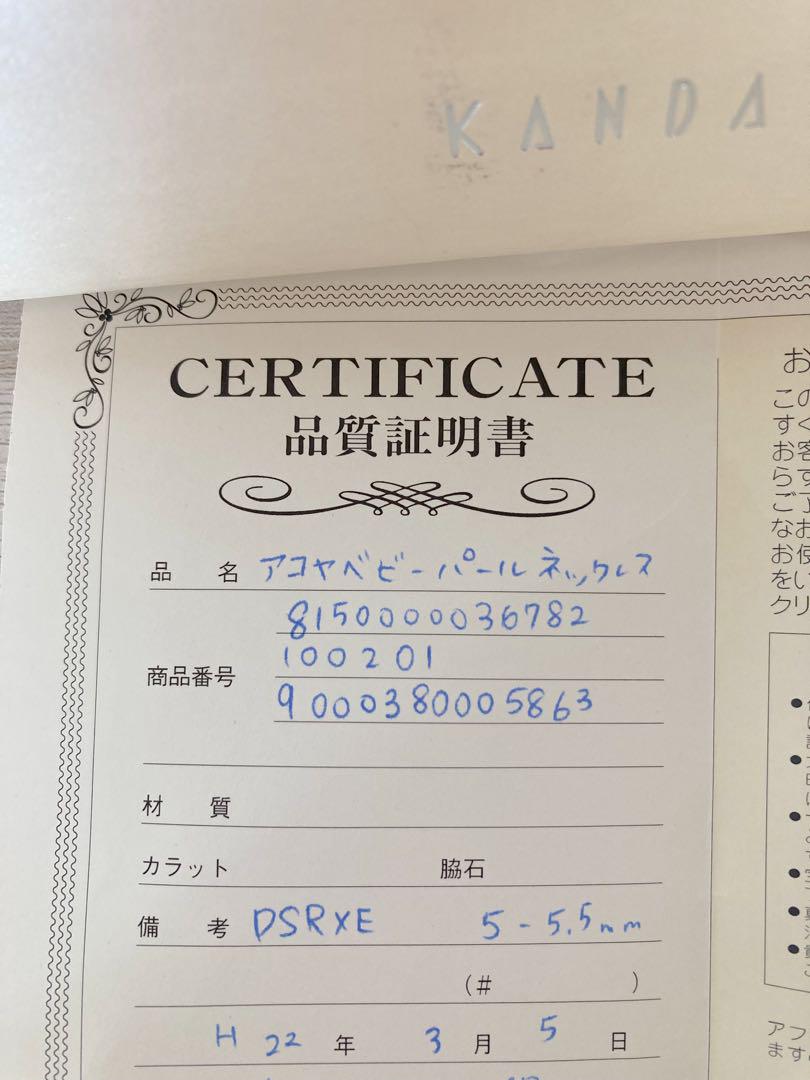 KANDA
CERTIFICATE
品質証明書
品名 アコヤベビーパールネックレス
8150000036782
商品番号 100201
9000380005863
材質
カラット 脇石
備考 DSRXE 5-5.5mm
(# )
H22年3月5日
お
この
すく
お客
らす
ご了
なお
お使
をい
クリ
アフ
ます